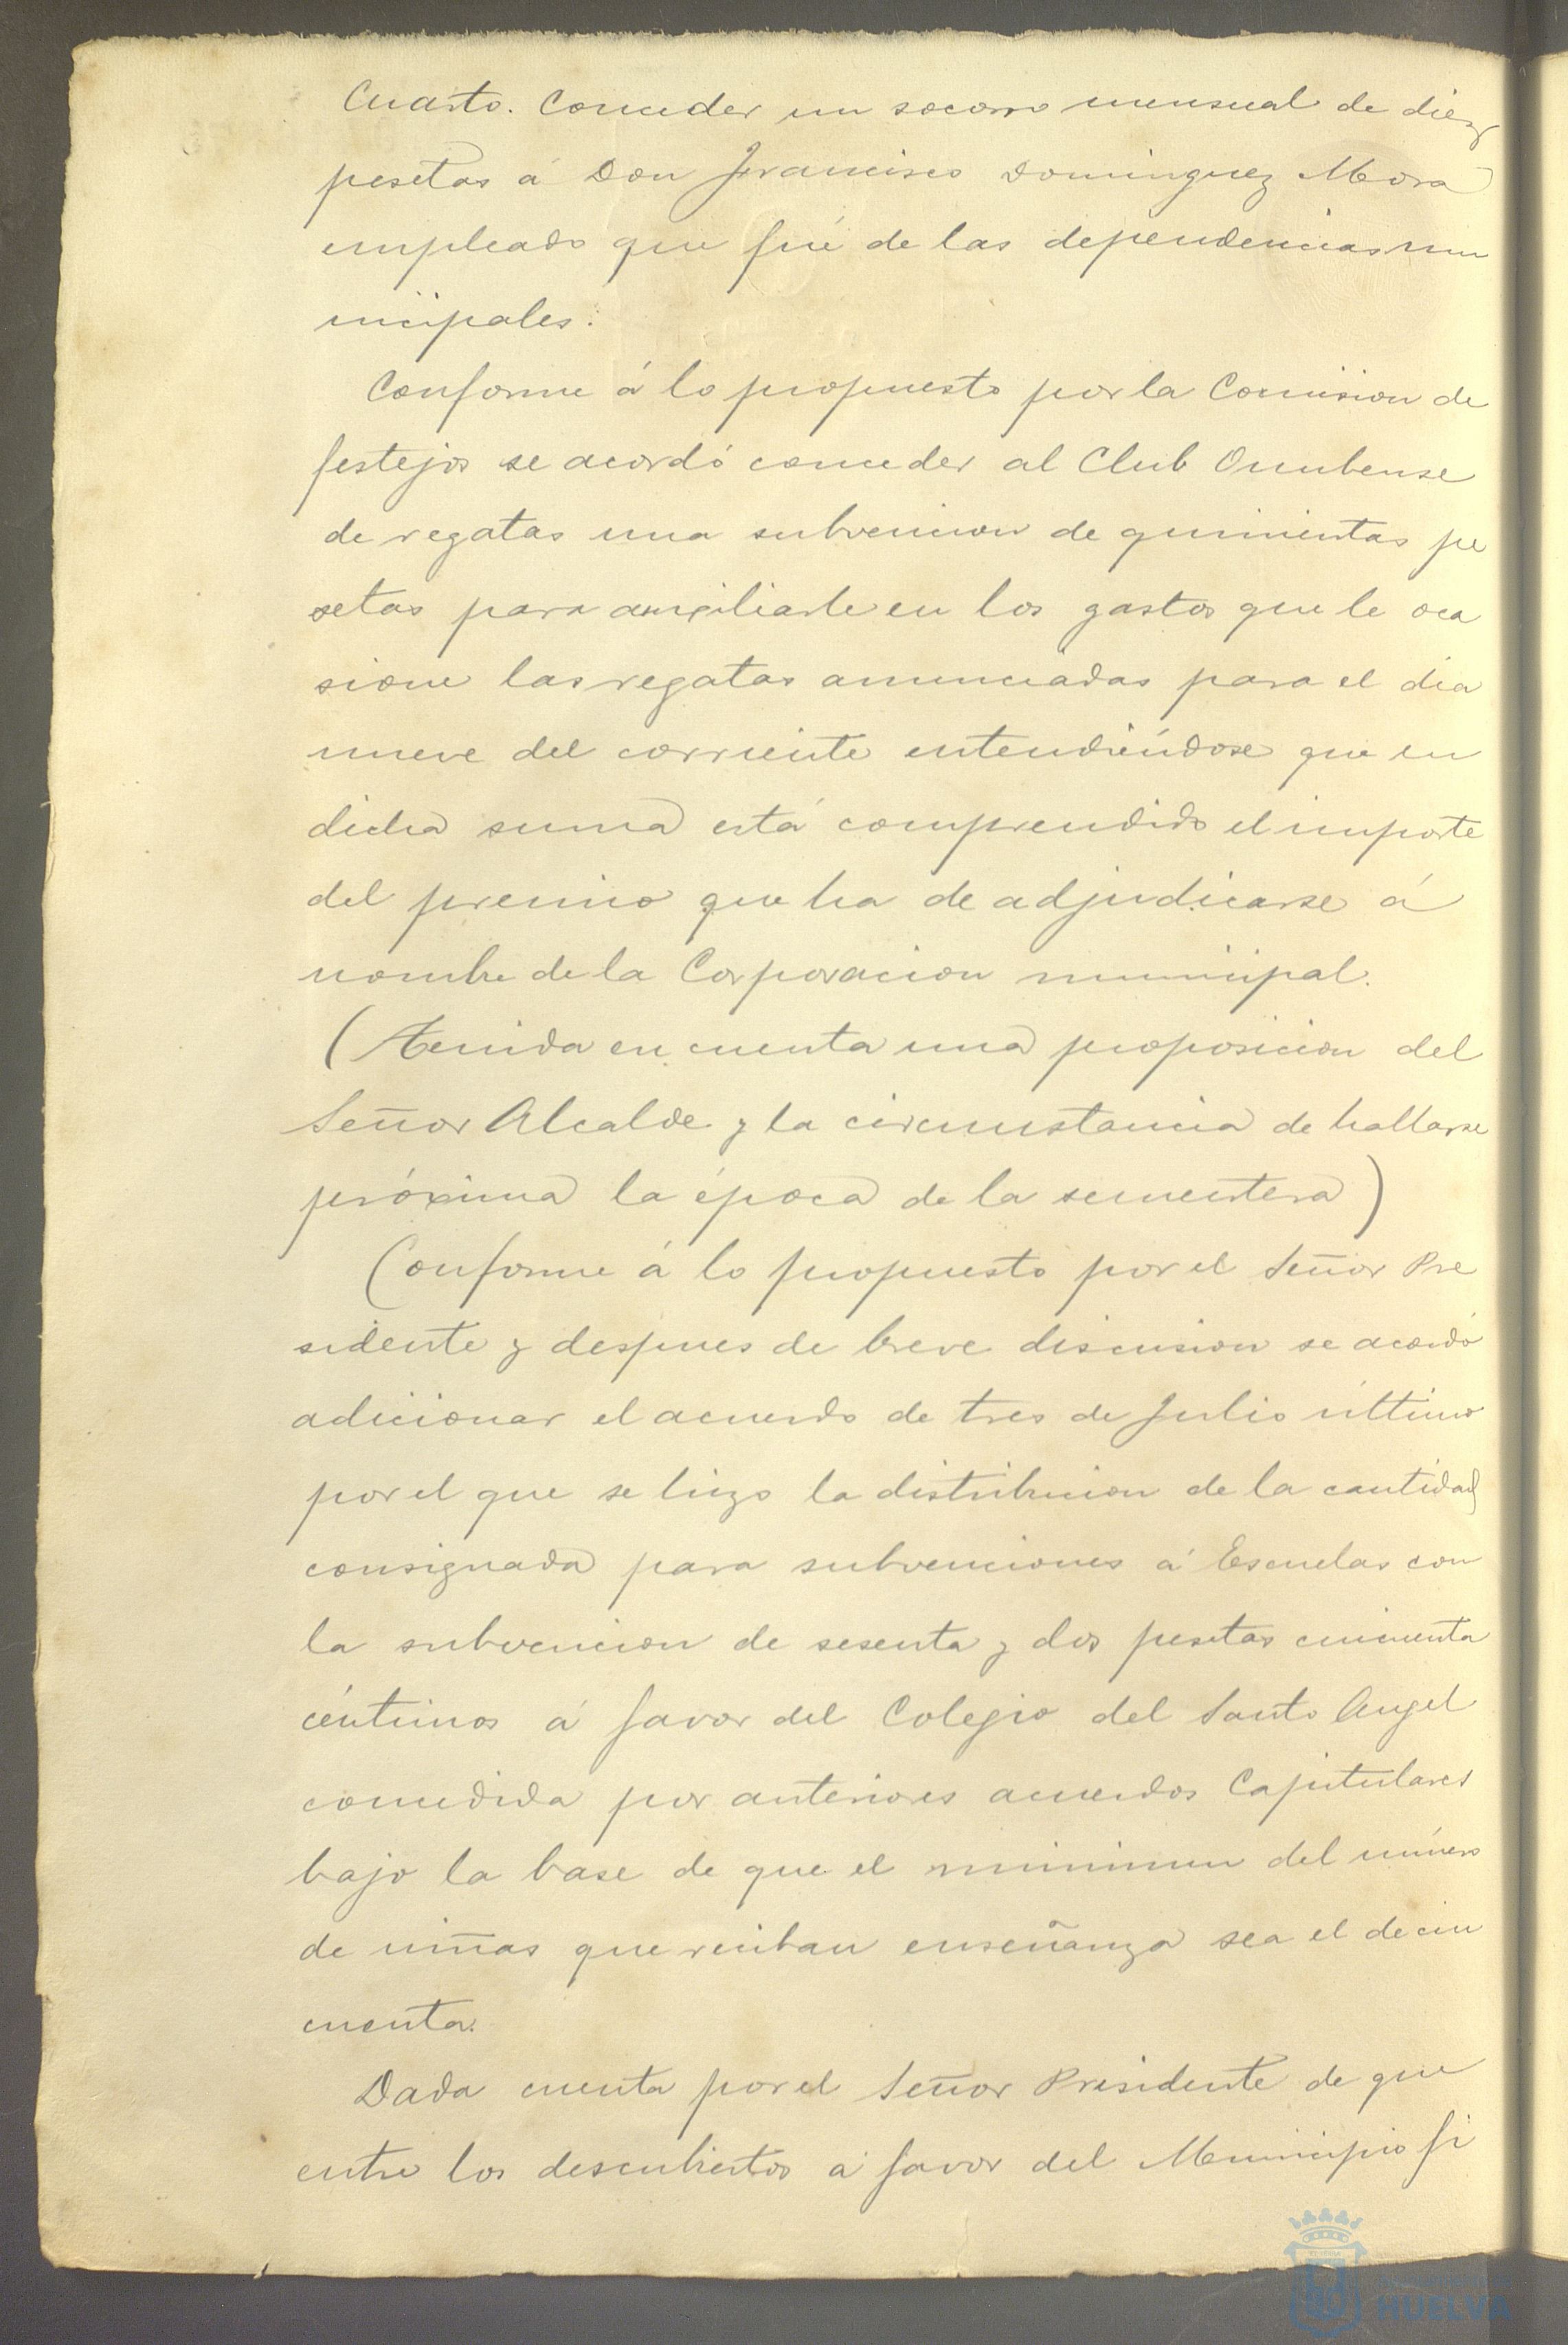 Cuarto. Conceder un socorro mensual de diez
pesetas á Don Francisco Dominguez Mora
empleado que fué de las dependencias mu
nicipales.
Conforme á lo propuesto por la Comision de
festejos se acordó conceder al Club Onubense
de regatas una subvencion de quinientas pe
setas para auxiliarle en los gastos que le oca
sione las regatas anunciadas para el dia
nueve del corriente entendiéndose que en
dicha suma está comprendido el importe
del premio que ha de adjudicarse á
nombre de la Corporacion municipal.
(Tenida en cuenta una proposicion del
Señor Alcalde y la circunstancia de hallarse
próxima la época de la sementera)
Conforme á lo propuesto por el Señor Pre
sidente y despues de breve discusion se acordó
adicionar el acuerdo de tres de Julio último
por el que se hizo la distribucion de la cantidad
consignada para subvenciones á Escuelas con
la subvencion de sesenta y dos pesetas cincuenta
céntimos á favor del Colegio del Santo Angel
concedida por anteriores acuerdos Capitulares
bajo la base de que el minimun del número
de niñas que reciban enseñanza sea el de cin
cuenta.
Dada cuenta por el Señor Presidente de que
entre los descubiertos á favor del Municipio fi
HUELVA